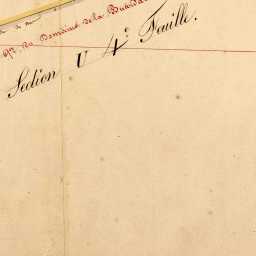 du Domaine de la
Section U 4e Feuille.